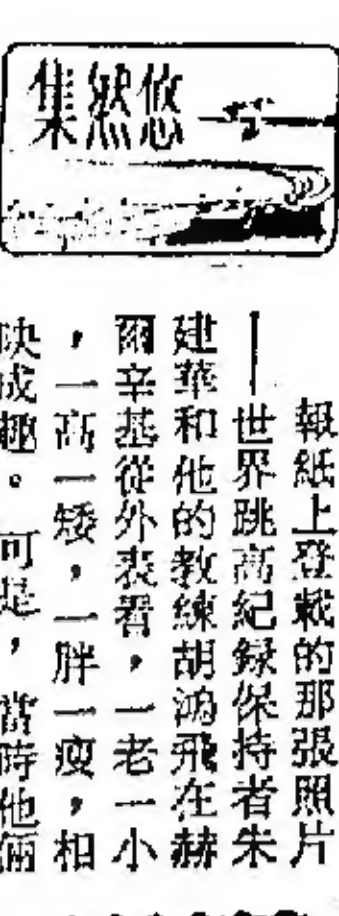 悠然集
報紙上登載的那張照片
——世界跳高紀錄保持者朱
建華和他的教練胡鴻飛在赫
爾辛基從外表看，一老一小
，一高一矮，一胖一瘦，相
映成趣。可是，當時他倆